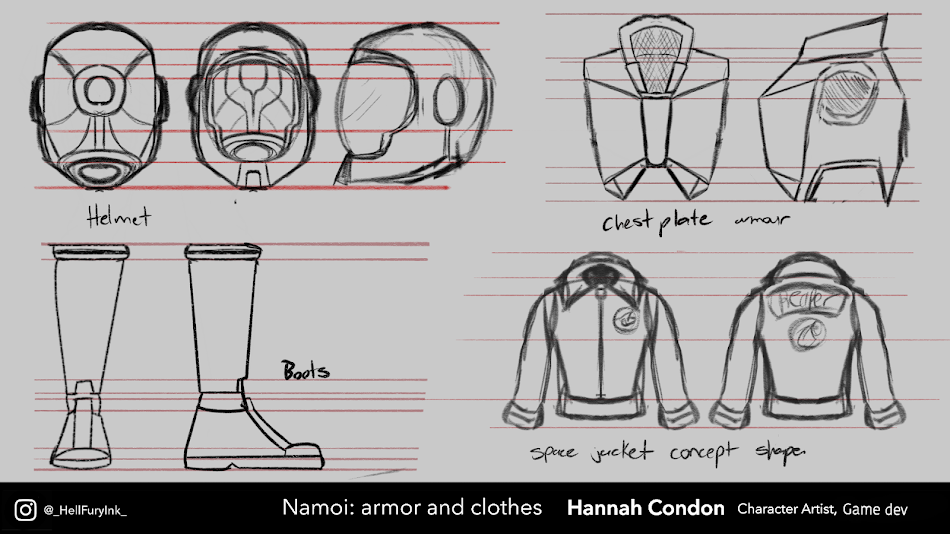 Helmet
chest plate armour
Boots
space jacket concept shape
@_HellFuryInk_
Namoi: armor and clothes
Hannah Condon
Character Artist, Game dev